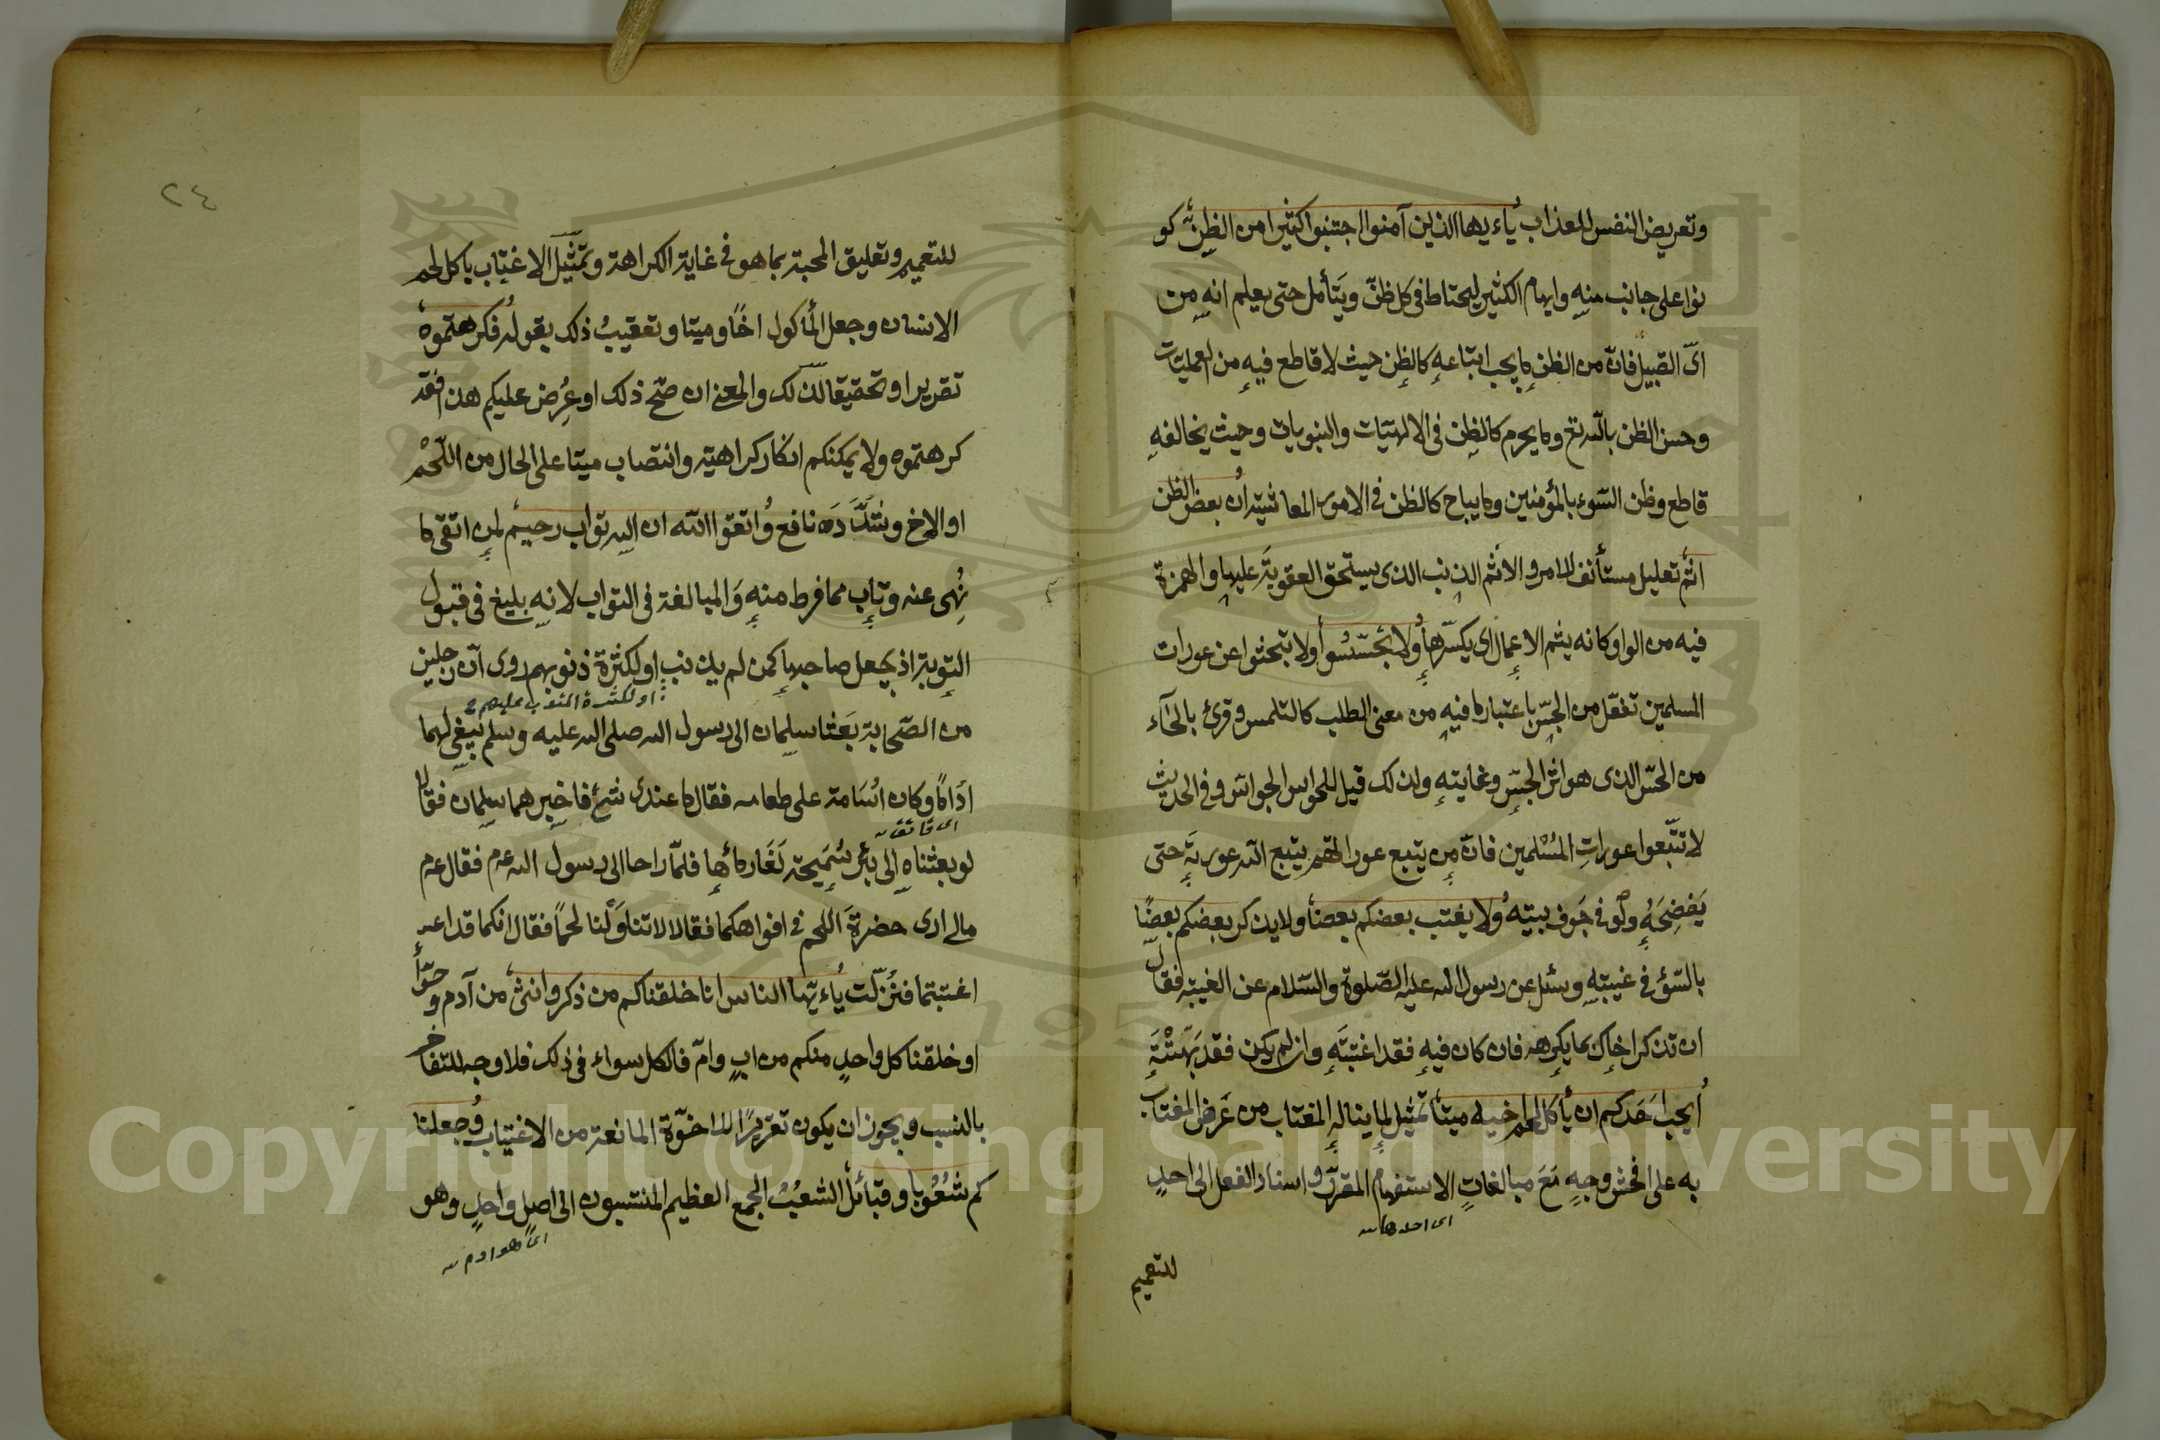 وتعريض النفس للعذاب ياءيها الذين آمنوا اجتنبوا كثيرا من الظن كو
نوا على جانب منه وابهام الكثير ليحتاط في كل ظن ويتأمل حتى يعلم انه من
اى القبيل فان من الظن ما يجب اتباعه كالظن حيث لا قاطع فيه من العمليات
وحسن الظن بالله تع وما يحرم كالظن في الالهيات والنبويات وحيث يخالفه
قاطع وظن السوء بالمؤمنين وما يباح كالظن في الامور المعاشية ان بعض الظن
اثم تعليل مستأنف للامر والاثم الذنب الذى يستحق العقوبة عليه والهمزة
فيه من الواو كانه يثم الاعمال اى يكسرها ولا تجسسوا ولا تبحثوا عن عورات
المسلمين تفعل من الجس باعتبار ما فيه من معنى الطلب كالتلمس وقرئ بالحاء
من الحس الذى هو اثر الجس وغايته ولذلك قيل للحواس الجواس وفي الحديث
لا تتبعوا عورات المسلمين فان من يتبع عوراتهم يتبع الله عورته حتى
يفضحه ولو في جوف بيته ولا يغتب بعضكم بعضا ولا يذكر بعضكم بعضا
بالسوء في غيبته وسئل عن رسول الله عليه الصلوة والسلام عن الغيبة فقال
ان تذكر اخاك بما يكرهه فان كان فيه فقد اغتبته وان لم يكن فقد بهته
أيحب احدكم ان يأكل لحم اخيه ميتا تمثيل لما يناله المغتاب من عرض المغتاب
به على افحش وجه مع مبالغات الاستفهام المقرر واسناد الفعل الى احد
اى احدها
للتعميم
٢٤
للتعميم وتعليق المحبة بما هو في غاية الكراهة وتمثيل الاغتياب باكل لحم
الانسان وجعل المأكول اخا وميتا وتعقيب ذلك بقوله فكرهتموه
تقريرا وتحقيقا لذلك والمعنى ان صح ذلك او عرض عليكم هذا فقد
كرهتموه ولا يمكنكم انكار كراهيته وانتصاب ميتا على الحال من اللحم
او الاخ وشدده نافع واتقوا الله ان الله تواب رحيم لمن اتقى ما
نهى عنه وتاب مما فرط منه والمبالغة في التواب لانه بليغ في قبول
التوبة اذ يجعل صاحبها كمن لم يذنب او لكثرة ذنوبهم روى ان رجلين
او لكثرة المتوب عليهم
من الصحابة بعثا سلمان الى رسول الله صلى الله عليه وسلم يبغى لهما
اداما وكان اسامة على طعامه فقال ما عندى شئ فاخبرهما سلمان فقالا
لو بعثناه الى بئر سميحة لغار ماؤها فلما راحا الى رسول الله عم فقال عم
مالى ارى حضرة اللحم في افواهكما فقالا لا تناولنا لحما فقال انكما قد
اغتبتما فنزلت ياءيها الناس انا خلقناكم من ذكر وانثى من آدم وحوا
او خلقنا كل واحد منكم من اب وام فالكل سواء في ذلك فلا وجه للتفاخر
بالنسب ويجوز ان يكون تقريرا للاخوة المانعة من الاغتياب وجعلنا
كم شعوبا وقبائل الشعب الجمع العظيم المنتسبون الى اصل واحد وهو
اى هو ادم
Copyright © King Saud University
1957